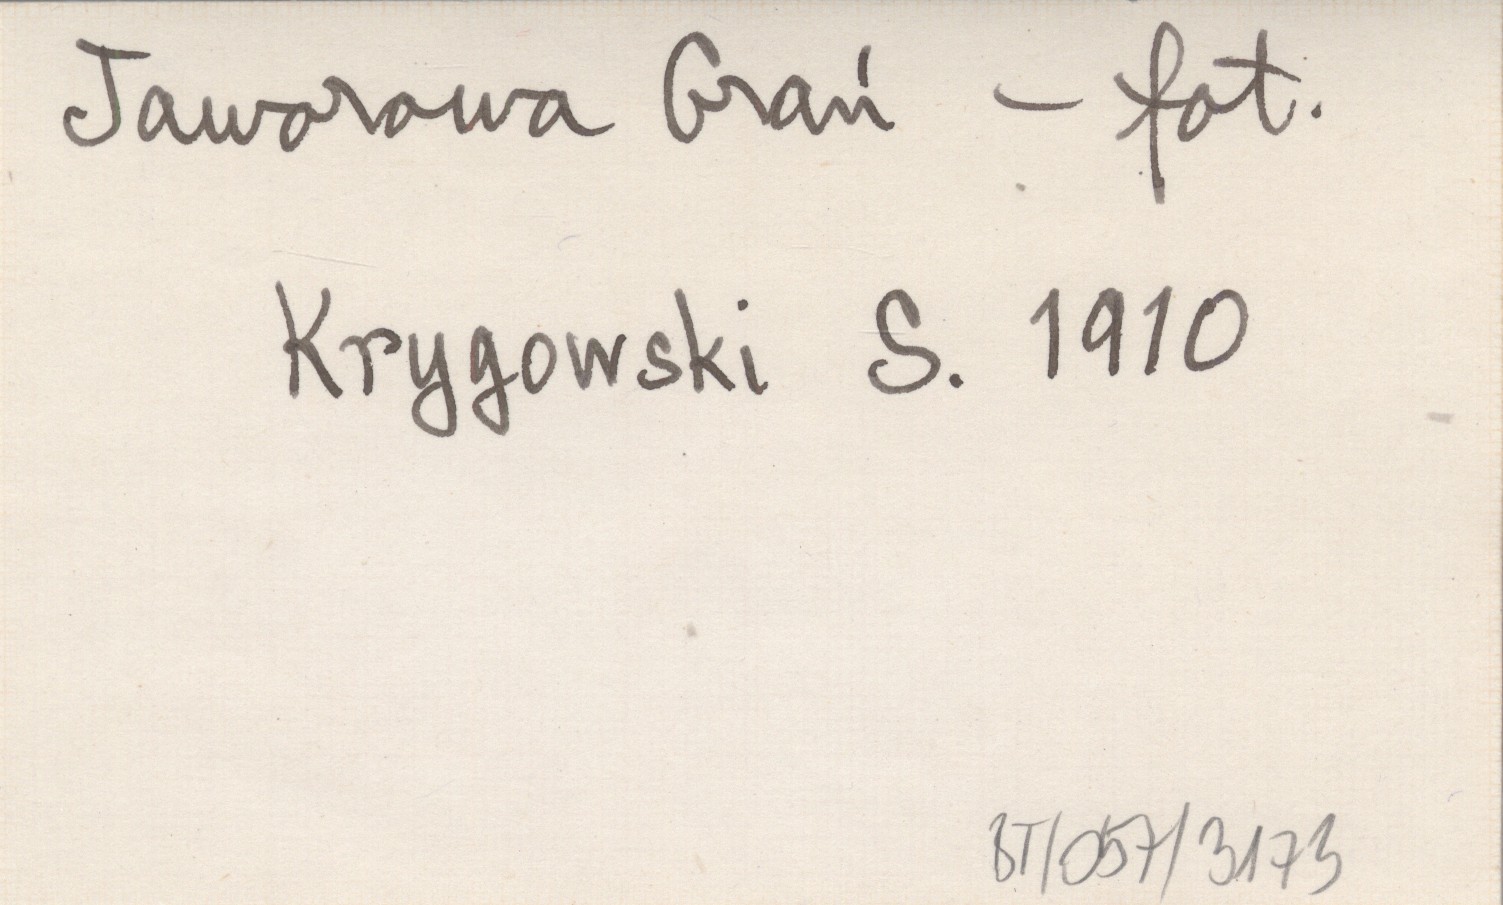 Jaworowa Grań – fot.
Krygowski S. 1910
BT/057/3173